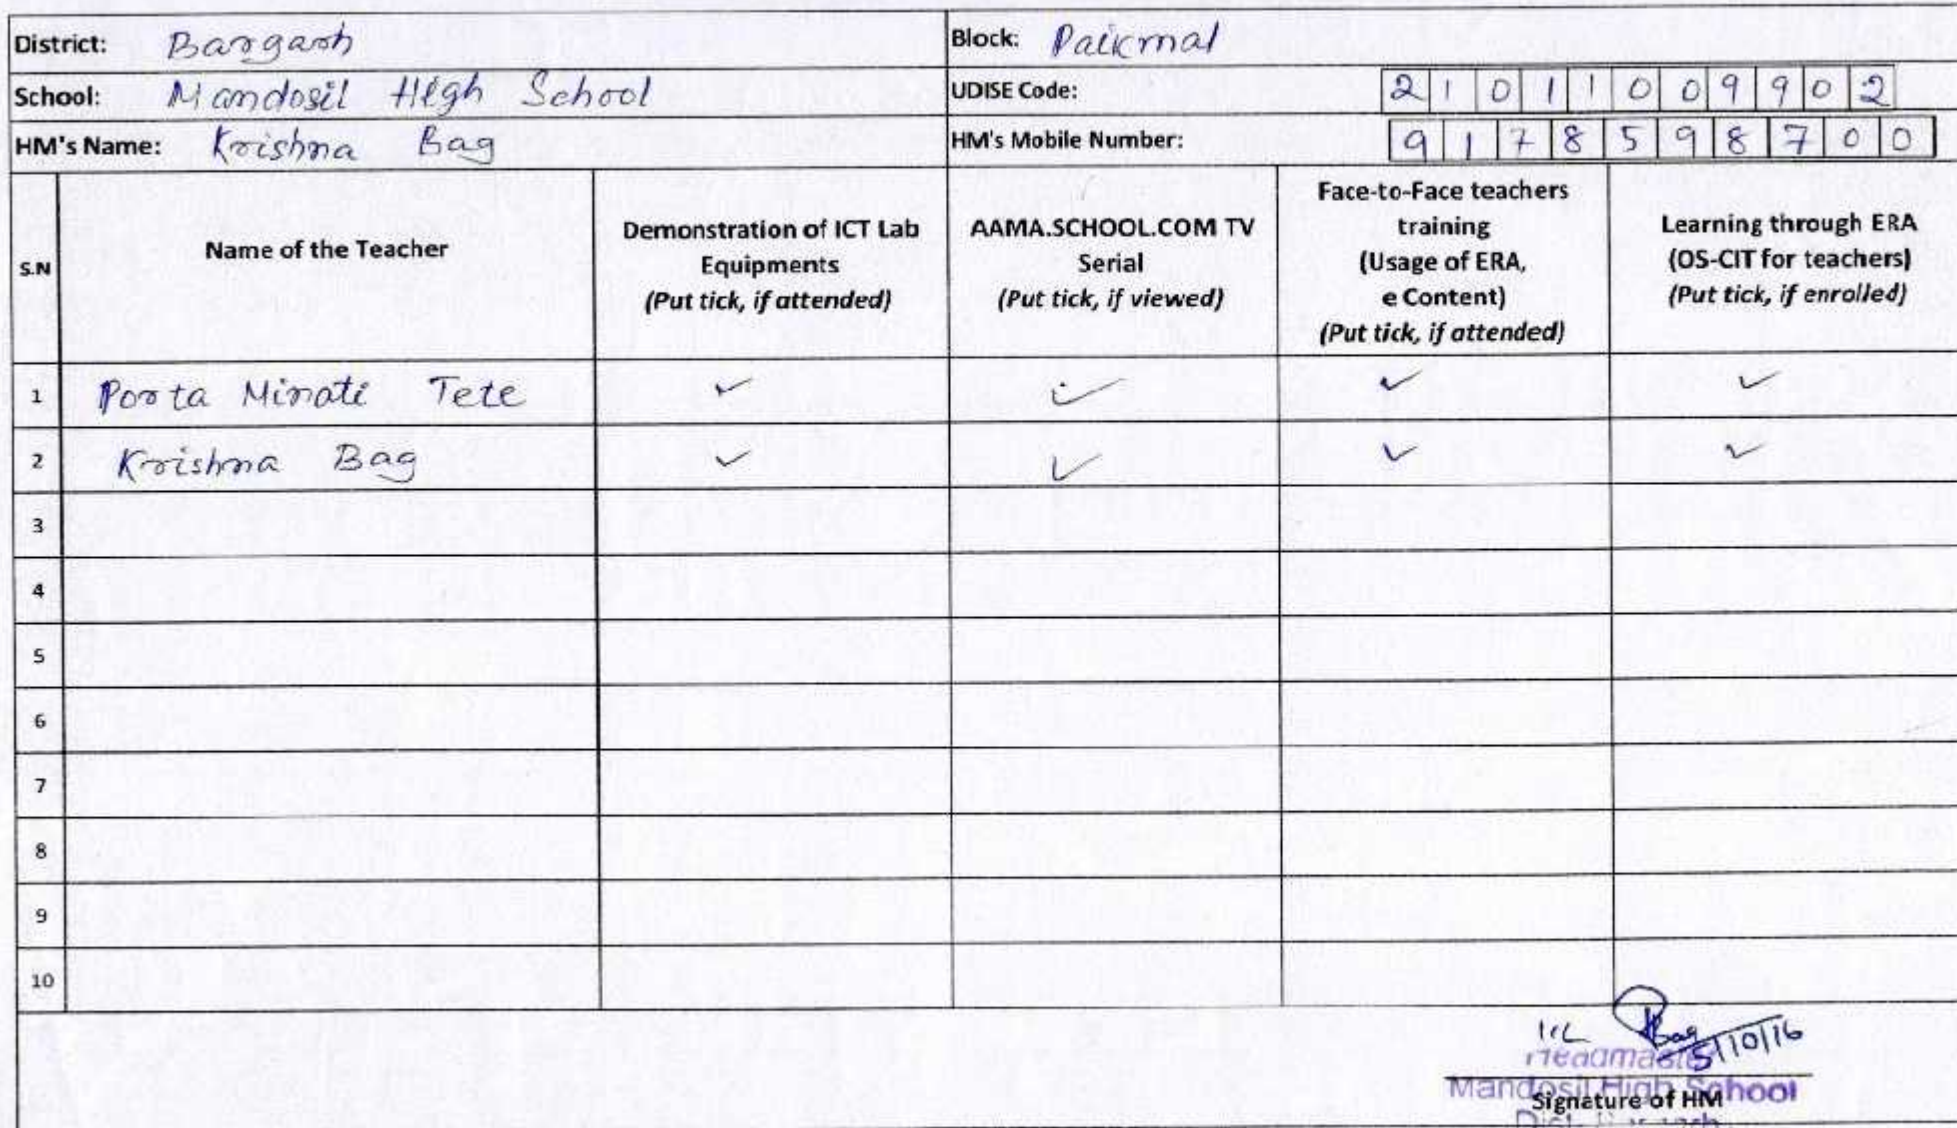 District: Bargarh Block: Paikmal
School: Mandosil High School UDISE Code: 2 1 0 1 1 0 0 9 9 0 2
HM's Name: Krishna Bag HM's Mobile Number: 9 1 7 8 5 9 8 7 0 0
S.N Name of the Teacher Demonstration of ICT Lab Equipments (Put tick, if attended) AAMA.SCHOOL.COM TV Serial (Put tick, if viewed) Face-to-Face teachers training (Usage of ERA, e Content) (Put tick, if attended) Learning through ERA (OS-CIT for teachers) (Put tick, if enrolled)
1 Porta Minati Tete ✓ ✓ ✓ ✓
2 Krishna Bag ✓ ✓ ✓ ✓
3
4
5
6
7
8
9
10
Bag 5/10/16
Headmaster
Mandosil High School
Signature of HM
Dist-